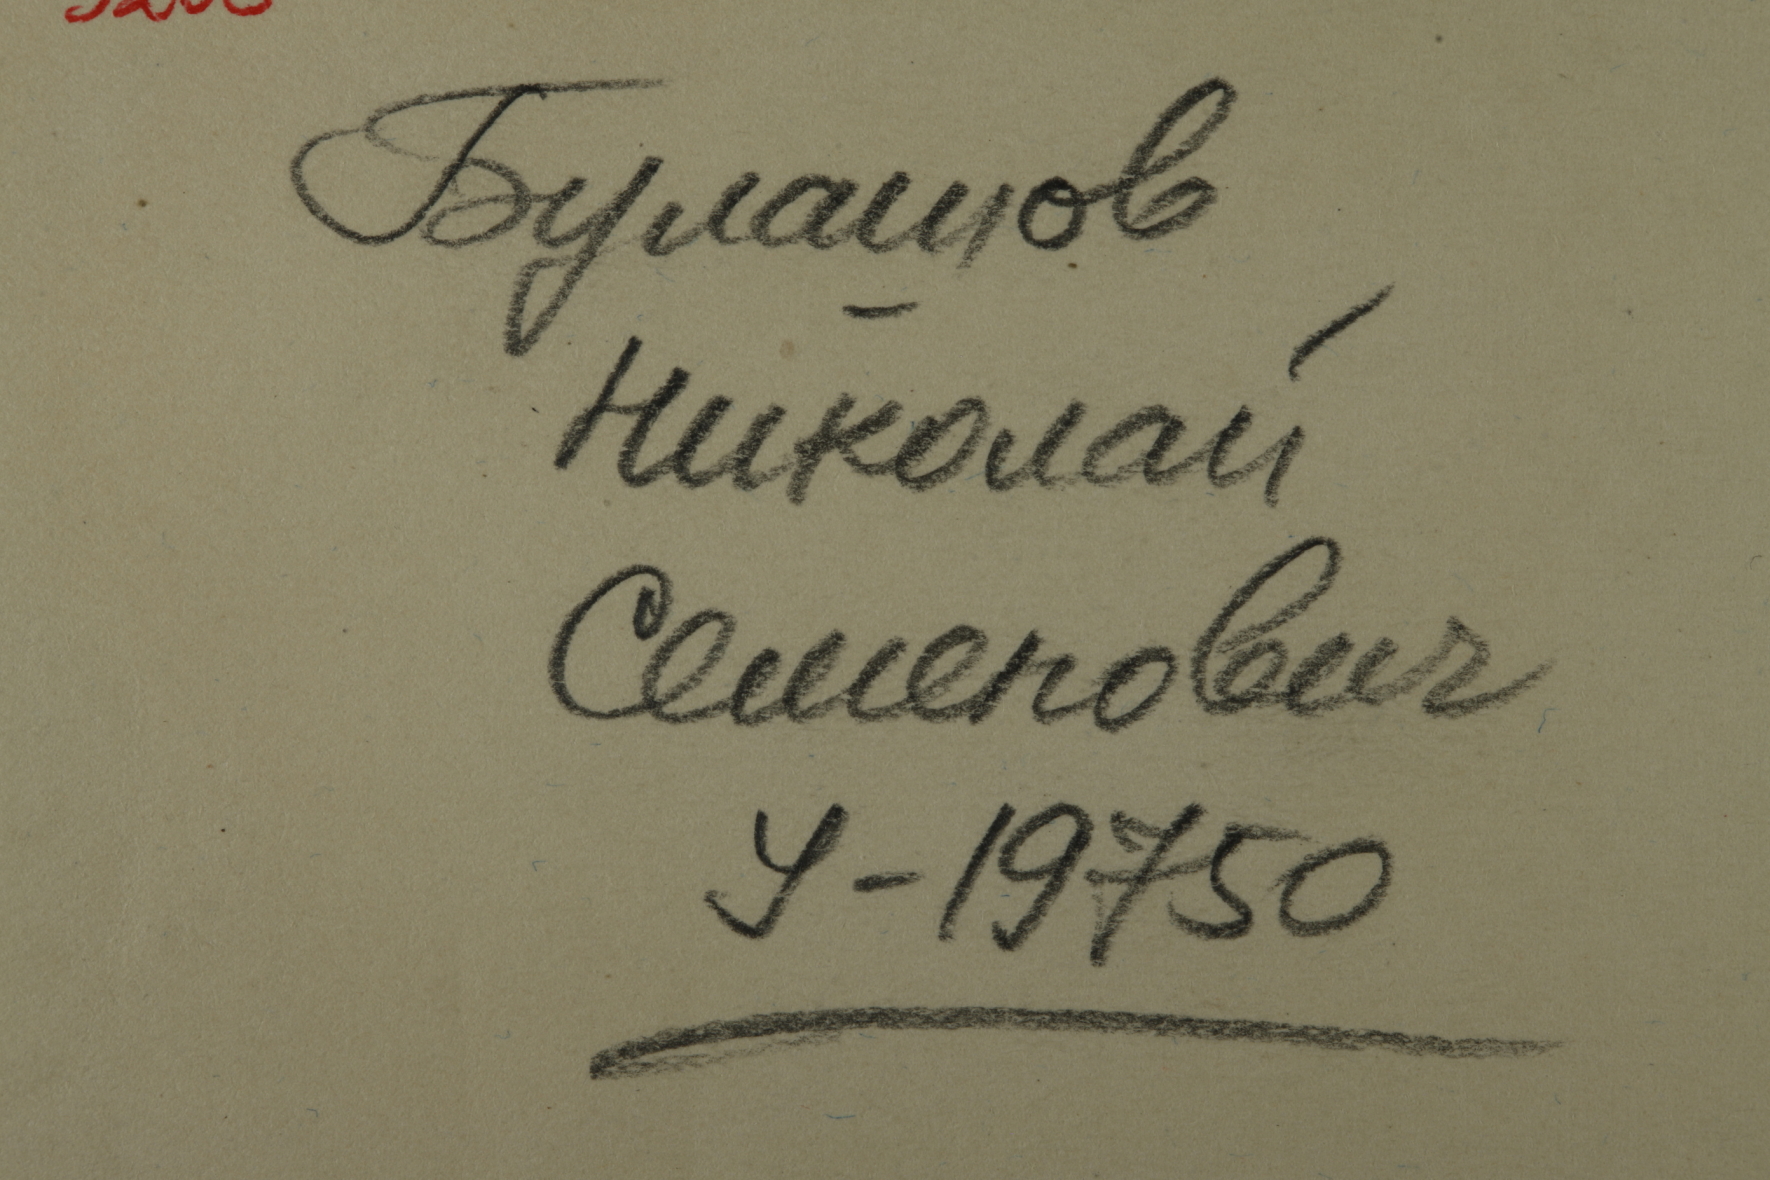 Булашов
Николай
Семенович
У-19750